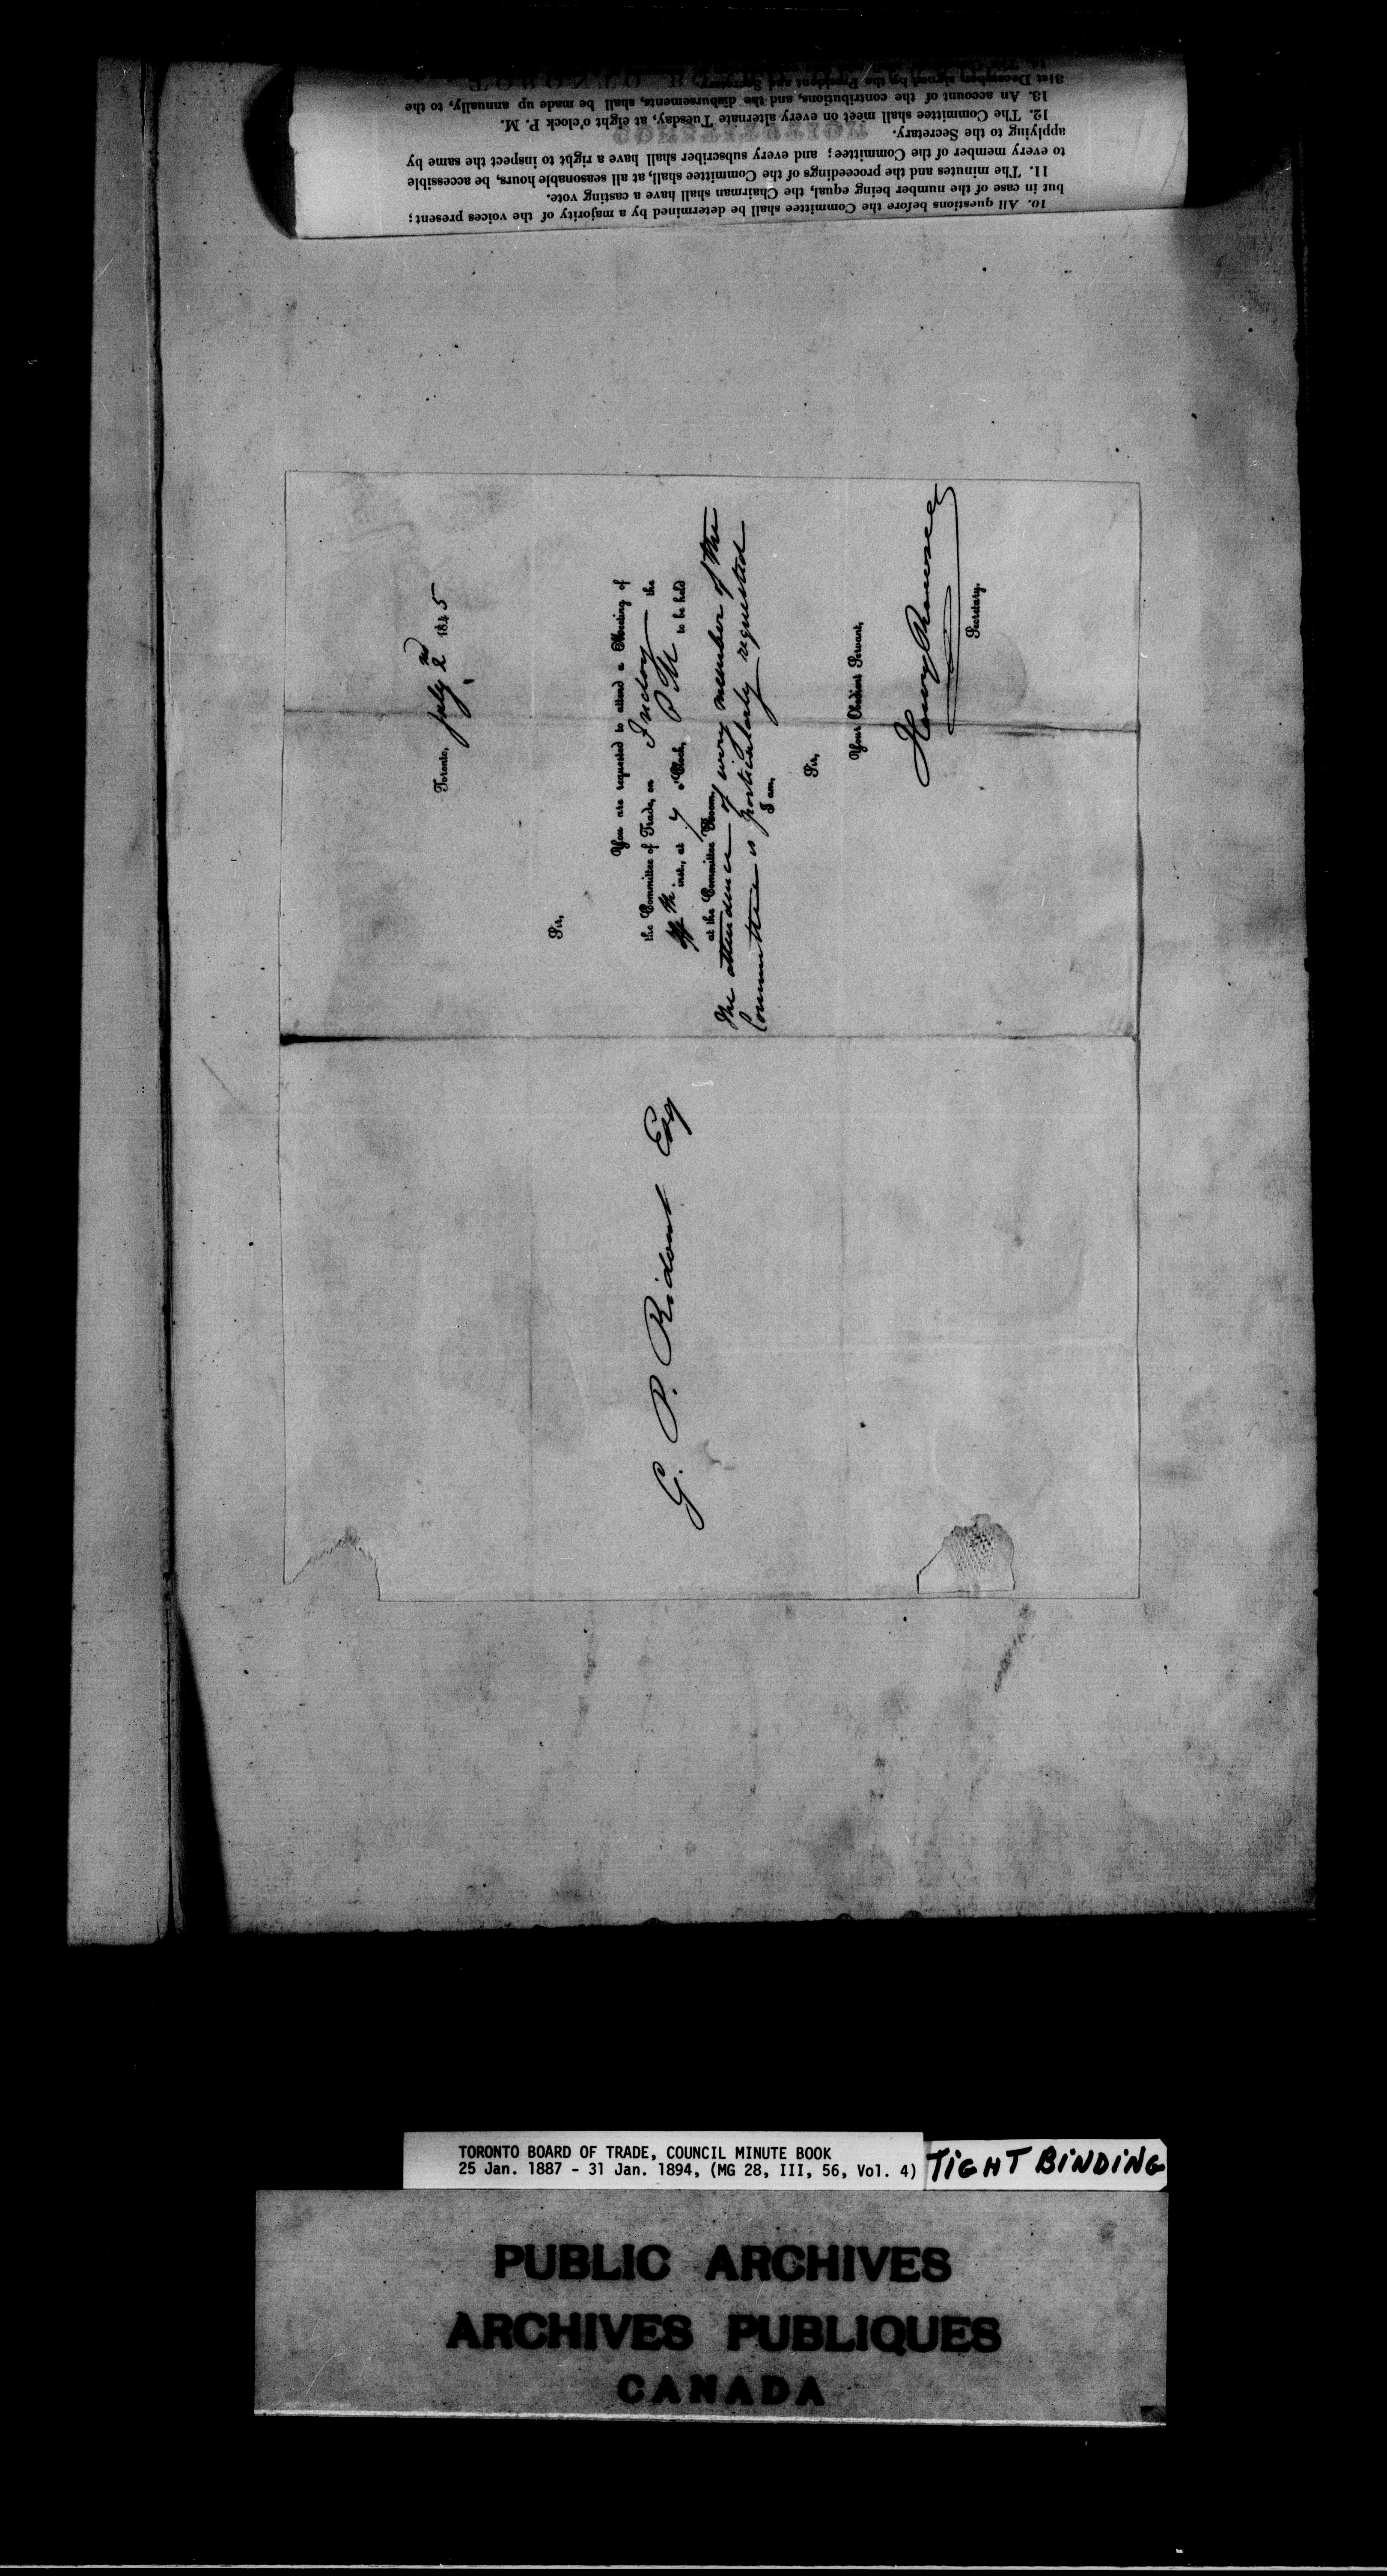 10. All questions before the Committee shall be determined by a majority of the voices present;
but in case of the number being equal, the Chairman shall have a casting vote.
11. The minutes and the proceedings of the Committee shall, at all seasonable hours, be accessible
to every member of the Committee; and every subscriber shall have a right to inspect the same by
applying to the Secretary.
12. The Committee shall meet on every alternate Tuesday, at eight o'clock P. M.
13. An account of the contributions, and the disbursements, shall be made up annually, to the
31st December, signed by the President and Secretary.
Toronto, July 2nd 1845
Sir,
You are requested to attend a Meeting of
the Committee of Trade, on Friday the
4th inst., at 7 o'Clock, P M to be held
at the Committee Room,
The attendence of every member of the
Committee is particularly requested
I am,
Sir,
Your Obedient Servant,
Henry Rowsell
Secretary.
G. P. Ridout Esq
TORONTO BOARD OF TRADE, COUNCIL MINUTE BOOK
25 Jan. 1887 - 31 Jan. 1894, (MG 28, III, 56, Vol. 4)
TIGHT BINDING
PUBLIC ARCHIVES
ARCHIVES PUBLIQUES
CANADA